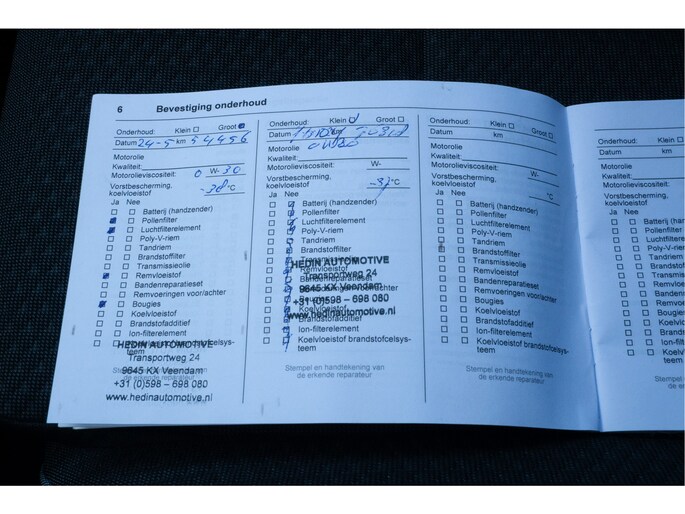 6 Bevestiging onderhoud
Onderhoud: Klein Groot
Datum 24-5 km 54456
Motorolie
Kwaliteit:
Motorolieviscositeit: 0 W- 30
Vorstbescherming,
koelvloeistof -38 °C
Ja Nee
Batterij (handzender)
Pollenfilter
Luchtfilterelement
Poly-V-riem
Tandriem
Brandstoffilter
Transmissieolie
Remvloeistof
Bandenreparatieset
Remvoeringen voor/achter
Bougies
Koelvloeistof
Brandstofadditief
Ion-filterelement
HEDIN AUTOMOTIVE
teem
Transportweg 24
9645 KX Veendam
+31 (0)598 – 698 080
www.hedinautomotive.nl
Onderhoud: Klein Groot
Datum km
Motorolie
Kwaliteit:
Motorolieviscositeit: W-
Vorstbescherming,
koelvloeistof °C
Ja Nee
Batterij (handzender)
Pollenfilter
Luchtfilterelement
Poly-V-riem
Tandriem
Brandstoffilter
HEDIN AUTOMOTIVE
Remvloeistof
Transportweg 24
9645 KX Veendam
+31 (0)598 – 698 080
www.hedinautomotive.nl
Brandstofadditief
Ion-filterelement
Koelvloeistof brandstofcelsys-
teem
Stempel en handtekening van
de erkende reparateur
Onderhoud: Klein Groot
Datum km
Motorolie
Kwaliteit:
Motorolieviscositeit: W-
Vorstbescherming,
koelvloeistof °C
Ja Nee
Batterij (handzender)
Pollenfilter
Luchtfilterelement
Poly-V-riem
Tandriem
Brandstoffilter
Transmissieolie
Remvloeistof
Bandenreparatieset
Remvoeringen voor/achter
Bougies
Koelvloeistof
Brandstofadditief
Ion-filterelement
Koelvloeistof brandstofcelsys-
teem
Stempel en handtekening van
de erkende reparateur
Onderhoud: Kle
Datum km
Motorolie
Kwaliteit:
Motorolieviscositeit:
Vorstbescherming,
koelvloeistof
Ja Nee
Batterij (han
Pollenfilter
Luchtfilterele
Poly-V-riem
Tandriem
Brandstoffilt
Transmissie
Remvloeist
Bandenrep
Remvoerin
Bougies
Koelvloeis
Brandstof
Ion-filtere
Koelvloei
teem
Stempel e
de er